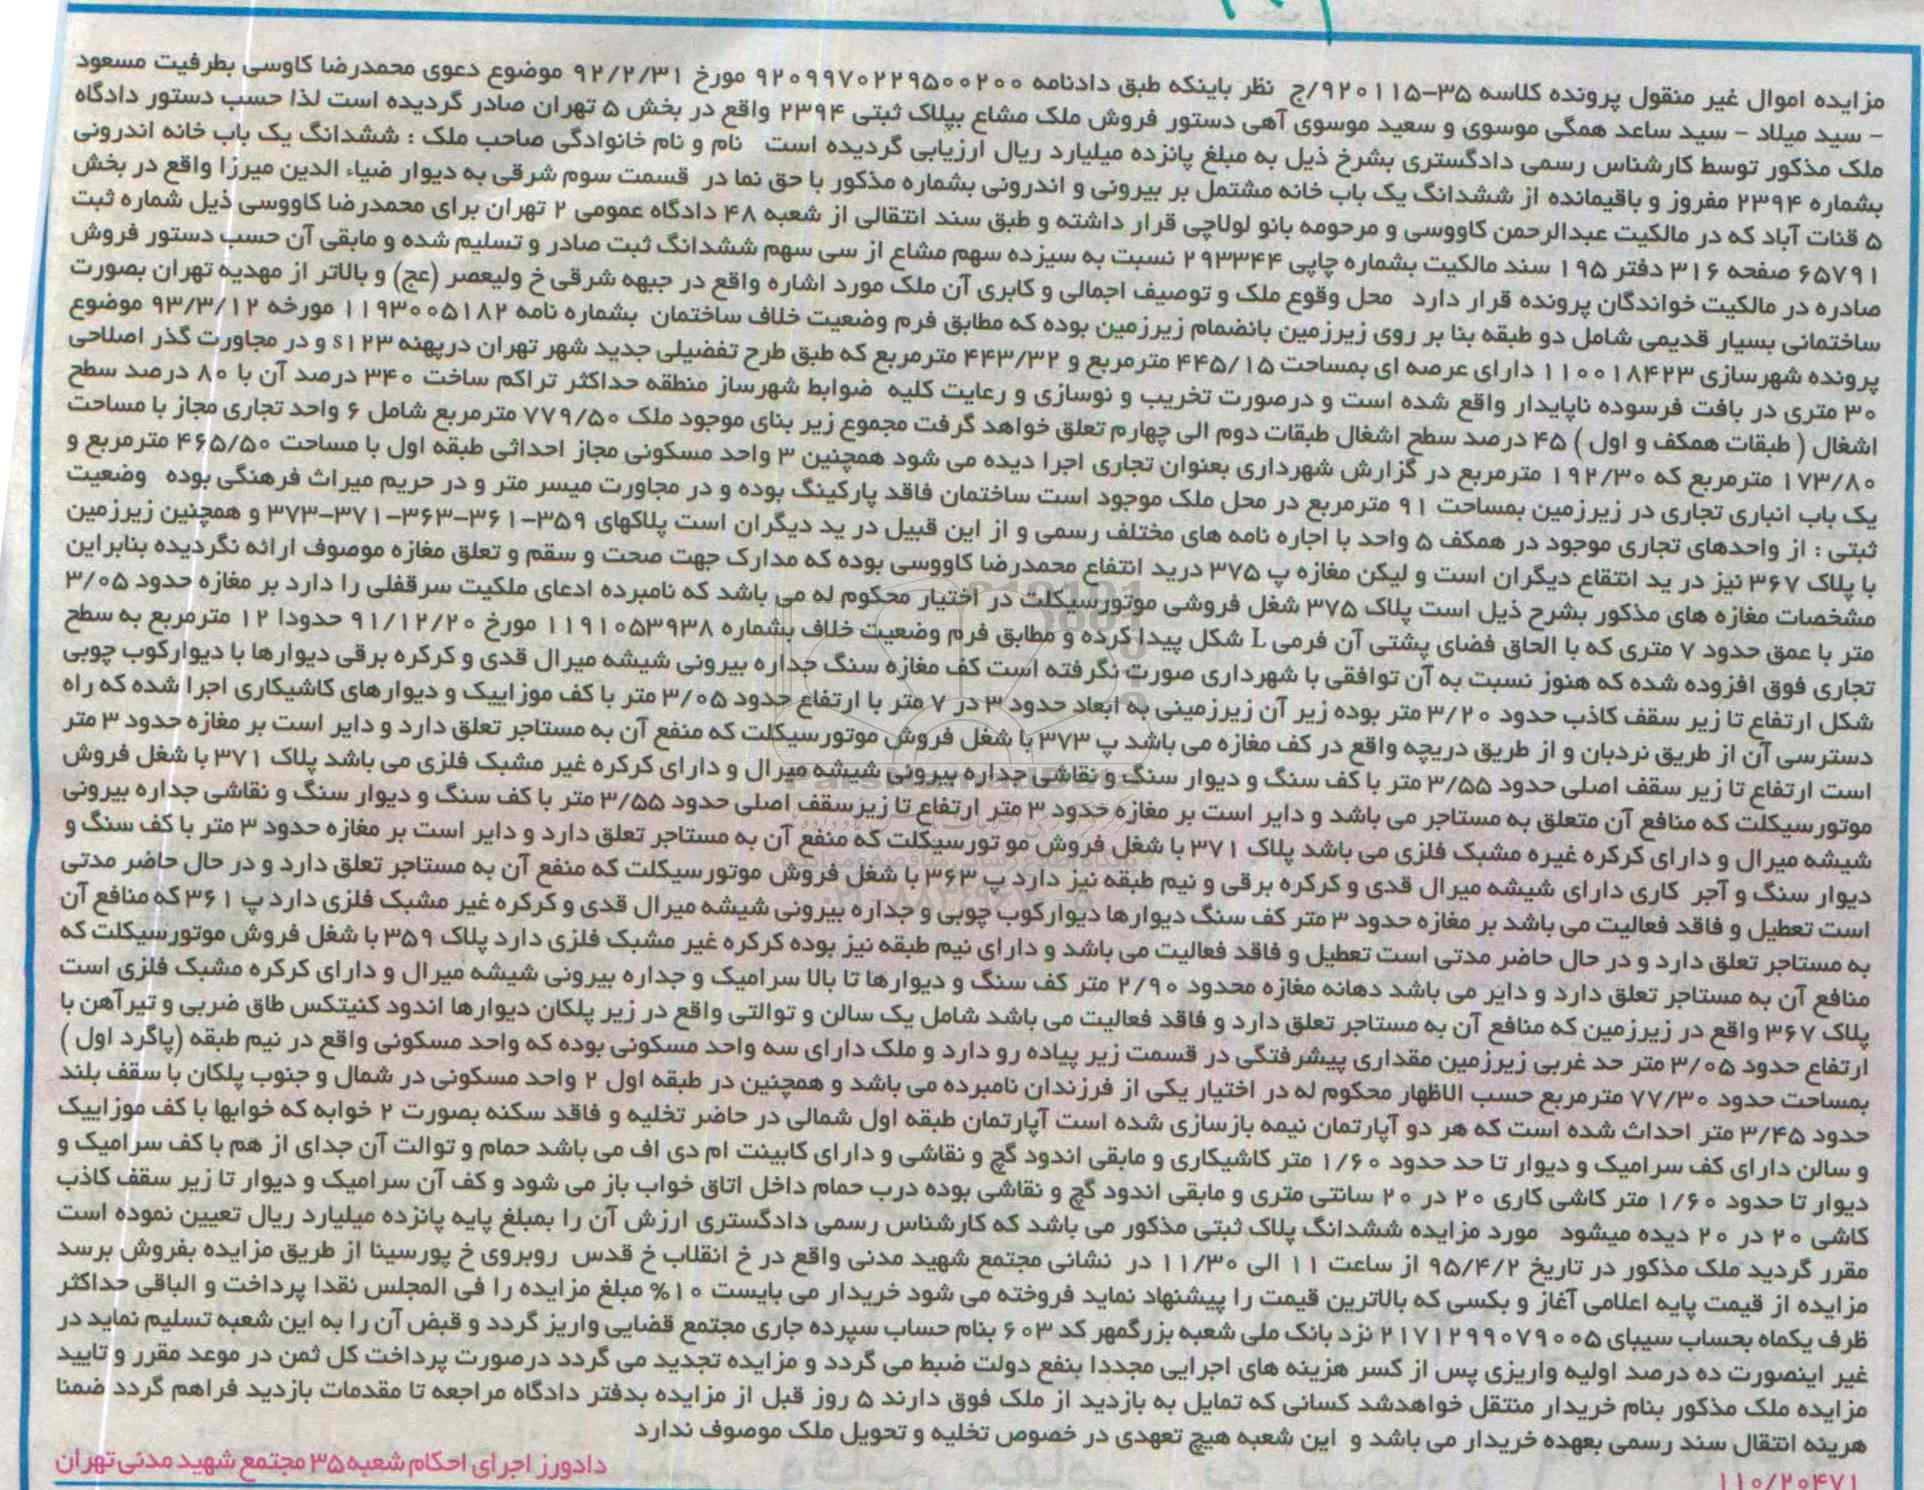 مزایده اموال غیر منقول پرونده کلاسه ۳۵-۹۲۰۱۱۵/ج نظر باینکه طبق دادنامه ۹۲۰۹۹۷۰۲۲۹۵۰۰۲۰۰ مورخ ۹۲/۲/۳۱ موضوع دعوی محمدرضا کاوسی بطرفیت مسعود
- سید میلاد - سید ساعد همگی موسوی و سعید موسوی آهی دستور فروش ملک مشاع بپلاک ثبتی ۲۳۹۴ واقع در بخش ۵ تهران صادر گردیده است لذا حسب دستور دادگاه
ملک مذکور توسط کارشناس رسمی دادگستری بشرح ذیل به مبلغ پانزده میلیارد ریال ارزیابی گردیده است نام و نام خانوادگی صاحب ملک : ششدانگ یک باب خانه اندرونی
بشماره ۲۳۹۴ مفروز و باقیمانده از ششدانگ یک باب خانه مشتمل بر بیرونی و اندرونی بشماره مذکور با حق نما در قسمت سوم شرقی به دیوار ضیاء الدین میرزا واقع در بخش
۵ قنات آباد که در مالکیت عبدالرحمن کاووسی و مرحومه بانو لولاچی قرار داشته و طبق سند انتقالی از شعبه ۴۸ دادگاه عمومی ۲ تهران برای محمدرضا کاووسی ذیل شماره ثبت
۶۵۷۹۱ صفحه ۳۱۶ دفتر ۱۹۵ سند مالکیت بشماره چاپی ۲۹۳۳۴۴ نسبت به سیزده سهم مشاع از سی سهم ششدانگ ثبت صادر و تسلیم شده و مابقی آن حسب دستور فروش
صادره در مالکیت خواندگان پرونده قرار دارد محل وقوع ملک و توصیف اجمالی و کابری آن ملک مورد اشاره واقع در جبهه شرقی خ ولیعصر (عج) و بالاتر از مهدیه تهران بصورت
ساختمانی بسیار قدیمی شامل دو طبقه بنا بر روی زیرزمین بانضمام زیرزمین بوده که مطابق فرم وضعیت خلاف ساختمان بشماره نامه ۱۱۹۳۰۰۵۱۸۲ مورخه ۹۳/۳/۱۲ موضوع
پرونده شهرسازی ۱۱۰۰۱۸۴۲۳ دارای عرصه ای بمساحت ۴۴۵/۱۵ مترمربع و ۴۴۳/۳۲ مترمربع که طبق طرح تفضیلی جدید شهر تهران درپهنه s۱۲۳ و در مجاورت گذر اصلاحی
۳۰ متری در بافت فرسوده ناپایدار واقع شده است و درصورت تخریب و نوسازی و رعایت کلیه ضوابط شهرساز منطقه حداکثر تراکم ساخت ۳۴۰ درصد آن با ۸۰ درصد سطح
اشغال ( طبقات همکف و اول ) ۴۵ درصد سطح اشغال طبقات دوم الی چهارم تعلق خواهد گرفت مجموع زیر بنای موجود ملک ۷۷۹/۵۰ مترمربع شامل ۶ واحد تجاری مجاز با مساحت
۱۷۳/۸۰ مترمربع که ۱۹۲/۳۰ مترمربع در گزارش شهرداری بعنوان تجاری اجرا دیده می شود همچنین ۳ واحد مسکونی مجاز احداثی طبقه اول با مساحت ۴۶۵/۵۰ مترمربع و
یک باب انباری تجاری در زیرزمین بمساحت ۹۱ مترمربع در محل ملک موجود است ساختمان فاقد پارکینگ بوده و در مجاورت میسر متر و در حریم میراث فرهنگی بوده وضعیت
ثبتی : از واحدهای تجاری موجود در همکف ۵ واحد با اجاره نامه های مختلف رسمی و از این قبیل در ید دیگران است پلاکهای ۳۵۹-۳۶۱-۳۶۳-۳۷۱-۳۷۳ و همچنین زیرزمین
با پلاک ۳۶۷ نیز در ید انتقاع دیگران است و لیکن مغازه پ ۳۷۵ درید انتفاع محمدرضا کاووسی بوده که مدارک جهت صحت و سقم و تعلق مغازه موصوف ارائه نگردیده بنابراین
مشخصات مغازه های مذکور بشرح ذیل است پلاک ۳۷۵ شغل فروشی موتورسیکلت در اختیار محکوم له می باشد که نامبرده ادعای ملکیت سرقفلی را دارد بر مغازه حدود ۳/۰۵
متر با عمق حدود ۷ متری که با الحاق فضای پشتی آن فرمی L شکل پیدا کرده و مطابق فرم وضعیت خلاف بشماره ۱۱۹۱۰۵۳۹۳۸ مورخ ۹۱/۱۲/۲۰ حدودا ۱۲ مترمربع به سطح
تجاری فوق افزوده شده که هنوز نسبت به آن توافقی با شهرداری صورت نگرفته است کف مغازه سنگ جداره بیرونی شیشه میرال قدی و کرکره برقی دیوارها با دیوارکوب چوبی
شکل ارتفاع تا زیر سقف کاذب حدود ۳/۲۰ متر بوده زیر آن زیرزمینی به ابعاد حدود ۳ در ۷ متر با ارتفاع حدود ۳/۰۵ متر با کف موزاییک و دیوارهای کاشیکاری اجرا شده که راه
دسترسی آن از طریق نردبان و از طریق دریچه واقع در کف مغازه می باشد پ ۳۷۳ با شغل فروش موتورسیکلت که منفع آن به مستاجر تعلق دارد و دایر است بر مغازه حدود ۳ متر
است ارتفاع تا زیر سقف اصلی حدود ۳/۵۵ متر با کف سنگ و دیوار سنگ و نقاشی جداره بیرونی شیشه میرال و دارای کرکره غیر مشبک فلزی می باشد پلاک ۳۷۱ با شغل فروش
موتورسیکلت که منافع آن متعلق به مستاجر می باشد و دایر است بر مغازه حدود ۳ متر ارتفاع تا زیرسقف اصلی حدود ۳/۵۵ متر با کف سنگ و دیوار سنگ و نقاشی جداره بیرونی
شیشه میرال و دارای کرکره غیره مشبک فلزی می باشد پلاک ۳۷۱ با شغل فروش مو تورسیکلت که منفع آن به مستاجر تعلق دارد و دایر است بر مغازه حدود ۳ متر با کف سنگ و
دیوار سنگ و آجر کاری دارای شیشه میرال قدی و کرکره برقی و نیم طبقه نیز دارد پ ۳۶۳ با شغل فروش موتورسیکلت که منفع آن به مستاجر تعلق دارد و در حال حاضر مدتی
است تعطیل و فاقد فعالیت می باشد بر مغازه حدود ۳ متر کف سنگ دیوارها دیوارکوب چوبی و جداره بیرونی شیشه میرال قدی و کرکره غیر مشبک فلزی دارد پ ۳۶۱ که منافع آن
به مستاجر تعلق دارد و در حال حاضر مدتی است تعطیل و فاقد فعالیت می باشد و دارای نیم طبقه نیز بوده کرکره غیر مشبک فلزی دارد پلاک ۳۵۹ با شغل فروش موتورسیکلت که
منافع آن به مستاجر تعلق دارد و دایر می باشد دهانه مغازه محدود ۲/۹۰ متر کف سنگ و دیوارها تا بالا سرامیک و جداره بیرونی شیشه میرال و دارای کرکره مشبک فلزی است
پلاک ۳۶۷ واقع در زیرزمین که منافع آن به مستاجر تعلق دارد و فاقد فعالیت می باشد شامل یک سالن و توالتی واقع در زیر پلکان دیوارها اندود کنیتکس طاق ضربی و تیرآهن با
ارتفاع حدود ۳/۰۵ متر حد غربی زیرزمین مقداری پیشرفتگی در قسمت زیر پیاده رو دارد و ملک دارای سه واحد مسکونی بوده که واحد مسکونی واقع در نیم طبقه (پاگرد اول )
بمساحت حدود ۷۷/۳۰ مترمربع حسب الاظهار محکوم له در اختیار یکی از فرزندان نامبرده می باشد و همچنین در طبقه اول ۲ واحد مسکونی در شمال و جنوب پلکان با سقف بلند
حدود ۳/۴۵ متر احداث شده است که هر دو آپارتمان نیمه بازسازی شده است آپارتمان طبقه اول شمالی در حاضر تخلیه و فاقد سکنه بصورت ۲ خوابه که خوابها با کف موزاییک
و سالن دارای کف سرامیک و دیوار تا حد حدود ۱/۶۰ متر کاشیکاری و مابقی اندود گچ و نقاشی و دارای کابینت ام دی اف می باشد حمام و توالت آن جدای از هم با کف سرامیک و
دیوار تا حدود ۱/۶۰ متر کاشی کاری ۲۰ در ۲۰ سانتی متری و مابقی اندود گچ و نقاشی بوده درب حمام داخل اتاق خواب باز می شود و کف آن سرامیک و دیوار تا زیر سقف کاذب
کاشی ۲۰ در ۲۰ دیده میشود مورد مزایده ششدانگ پلاک ثبتی مذکور می باشد که کارشناس رسمی دادگستری ارزش آن را بمبلغ پایه پانزده میلیارد ریال تعیین نموده است
مقرر گردید ملک مذکور در تاریخ ۹۵/۴/۲ از ساعت ۱۱ الی ۱۱/۳۰ در نشانی مجتمع شهید مدنی واقع در خ انقلاب خ قدس روبروی خ پورسینا از طریق مزایده بفروش برسد
مزایده از قیمت پایه اعلامی آغاز و بکسی که بالاترین قیمت را پیشنهاد نماید فروخته می شود خریدار می بایست ۱۰% مبلغ مزایده را فی المجلس نقدا پرداخت و الباقی حداکثر
ظرف یکماه بحساب سیبای ۲۱۷۱۲۹۹۰۷۹۰۰۵ نزد بانک ملی شعبه بزرگمهر کد ۶۰۳ بنام حساب سپرده جاری مجتمع قضایی واریز گردد و قبض آن را به این شعبه تسلیم نماید در
غیر اینصورت ده درصد اولیه واریزی پس از کسر هزینه های اجرایی مجددا بنفع دولت ضبط می گردد و مزایده تجدید می گردد درصورت پرداخت کل ثمن در موعد مقرر و تایید
مزایده ملک مذکور بنام خریدار منتقل خواهدشد کسانی که تمایل به بازدید از ملک فوق دارند ۵ روز قبل از مزایده بدفتر دادگاه مراجعه تا مقدمات بازدید فراهم گردد ضمنا
هرینه انتقال سند رسمی بعهده خریدار می باشد و این شعبه هیچ تعهدی در خصوص تخلیه و تحویل ملک موصوف ندارد
دادورز اجرای احکام شعبه ۳۵ مجتمع شهید مدنی تهران
۱۱۰/۲۰۴۷۱